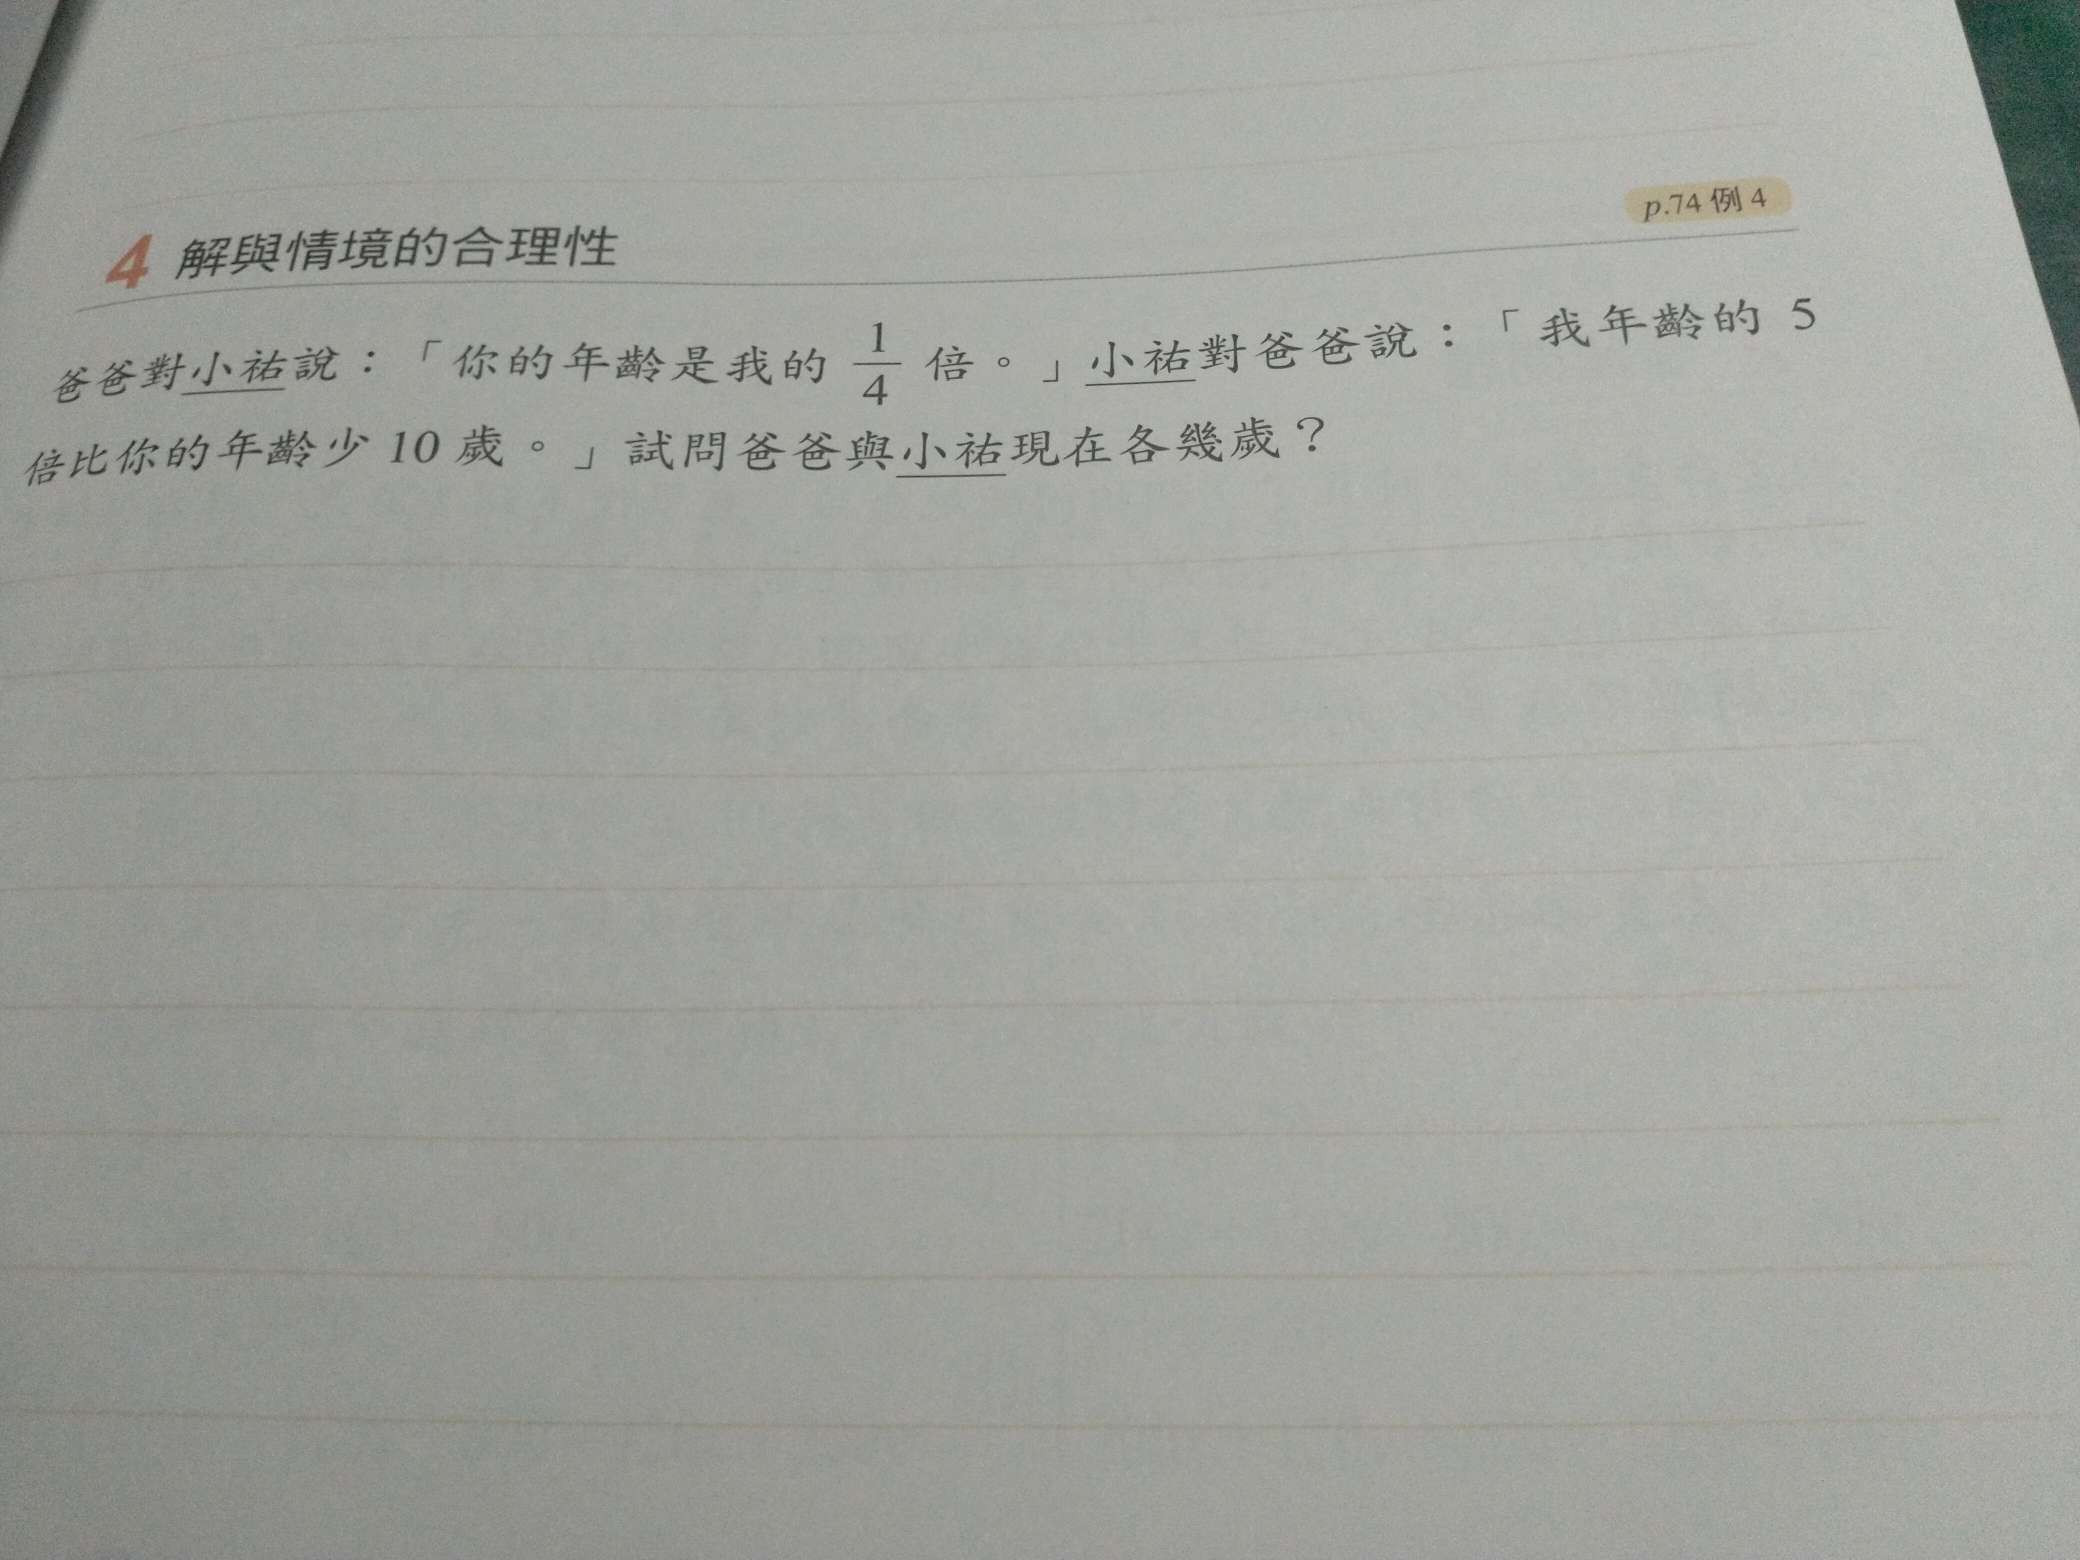 p.74 例 4
4 解與情境的合理性
爸爸對小祐說：「你的年齡是我的 1/4 倍。」小祐對爸爸說：「我年齡的 5
倍比你的年齡少 10 歲。」試問爸爸與小祐現在各幾歲？